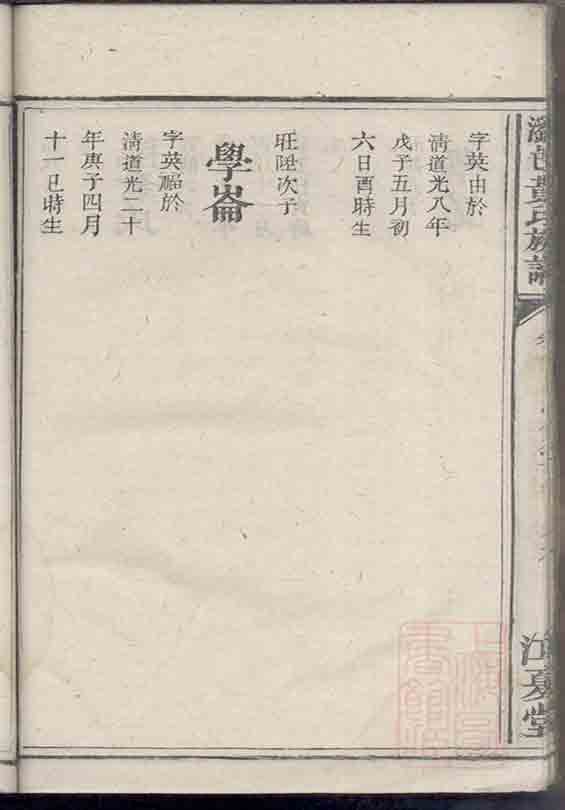 瀏邑黃氏族譜
江夏堂
字英由於
清道光八年
戊子五月初
六日酉時生
旺陞次子
學崙
字英韶於
清道光二十
年庚子四月
十一巳時生